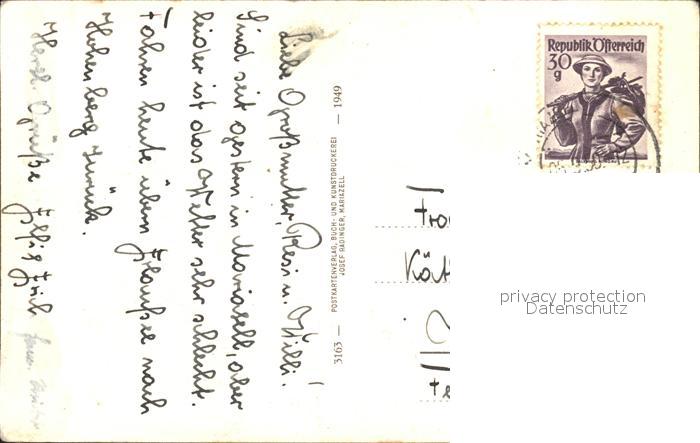 Liebe Großmutter, Resi u. Willi!
Sind seit gestern in Mariazell, aber
leider ist das Wetter sehr schlecht.
Fahren heute übern Hlaußee nach
Hohenberg zurück.
Herzl. Grüße
3163 — POSTKARTENVERLAG, BUCH- UND KUNSTDRUCKEREI — 1949
JOSEF RADINGER, MARIAZELL
Republik Österreich
30
g
Kät
privacy protection
Datenschutz